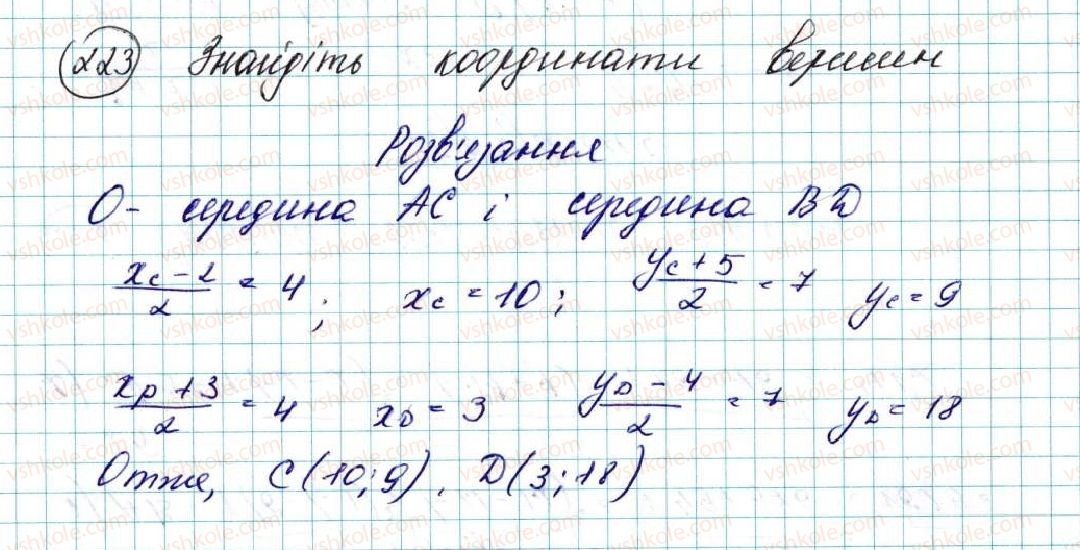 223 Знайдіть координати вершин
Розв'язання
О - середина АС і середина ВD
(x_C - 2)/2 = 4; x_C = 10; (y_C + 5)/2 = 7 y_C = 9
(x_D + 3)/2 = 4 x_D = 3 (y_D - 4)/2 = 7 y_D = 18
Отже, C(10;9), D(3;18)